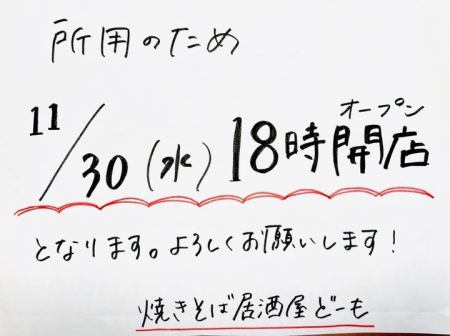 所用のため
11/30(水) 18時開店
オープン
となります。よろしくお願いします!
焼きそば居酒屋どーも